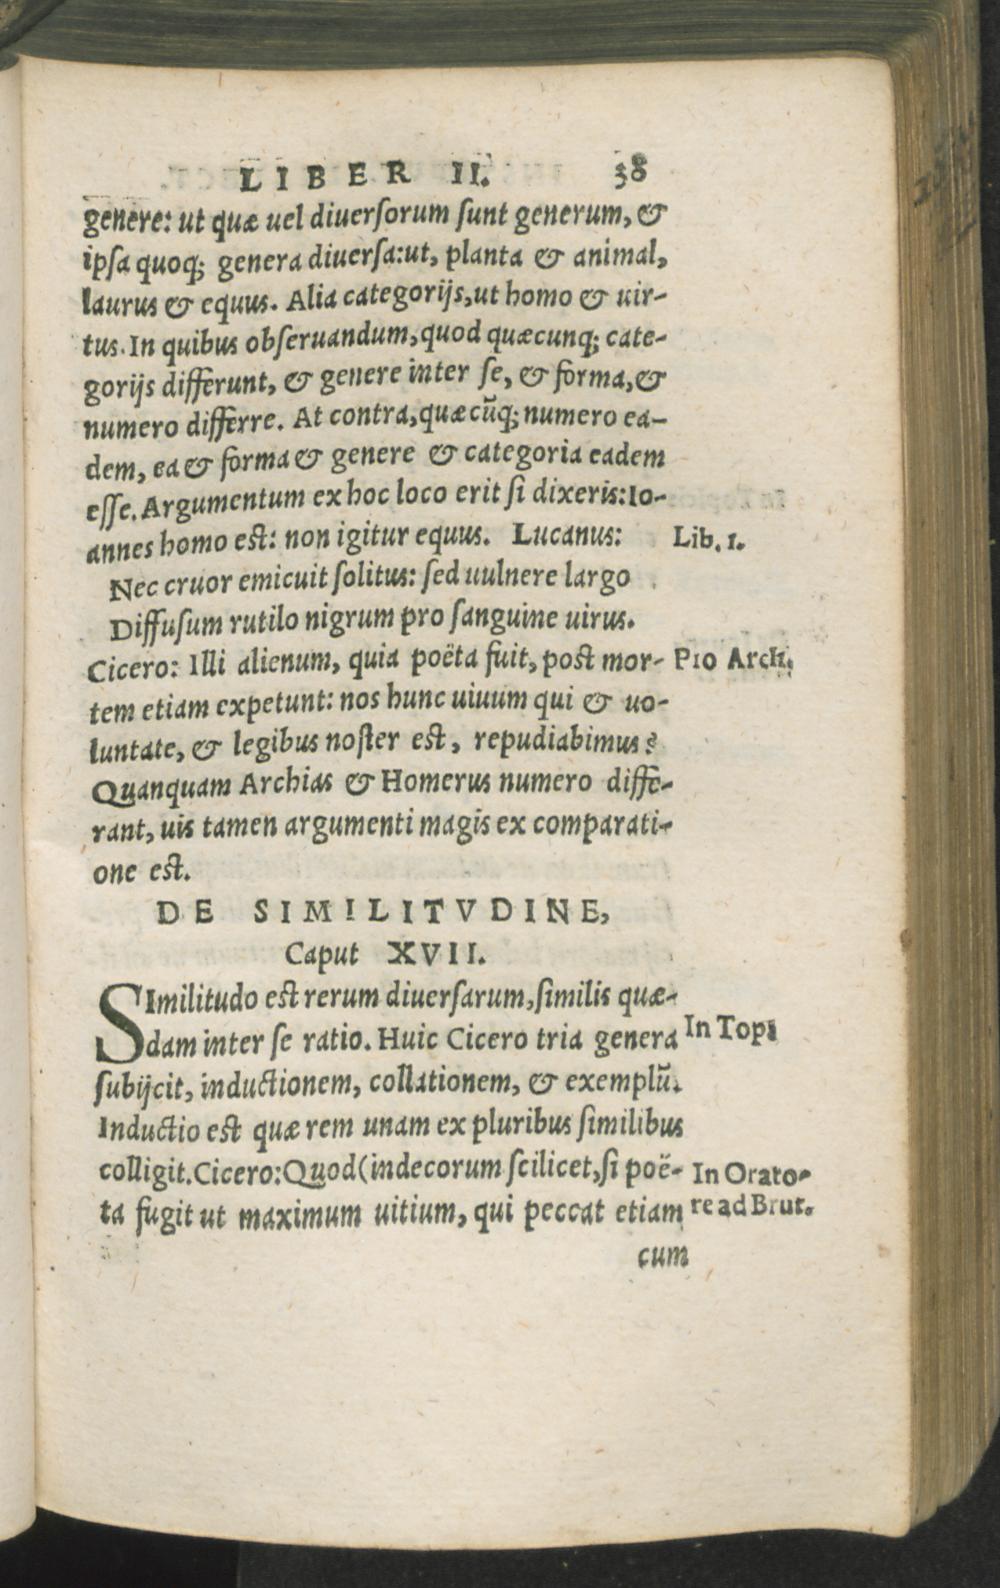 LIBER II. 38
genere: ut quæ uel diuerſorum ſunt generum, &
ipſa quoq; genera diuerſa:ut, planta & animal,
laurus & equus. Alia categorijs,ut homo & uir-
tus. In quibus obſeruandum,quod quæcunq; cate-
gorijs differunt, & genere inter ſe, & forma,&
numero differre. At contra,quæcūq; numero ea-
dem, ea & forma & genere & categoria eadem
eſſe. Argumentum ex hoc loco erit ſi dixeris:Io-
annes homo est: non igitur equus. Lucanus: Lib. 1.
Nec cruor emicuit ſolitus: ſed uulnere largo
Diffuſum rutilo nigrum pro ſanguine uirus.
Cicero: Illi alienum, quia poëta fuit, post mor- Pro Arch.
tem etiam expetunt: nos hunc uiuum qui & uo-
luntate, & legibus noſter est, repudiabimus?
Quanquam Archias & Homerus numero diffe-
rant, uis tamen argumenti magis ex comparati-
one est.
DE SIMILITVDINE,
Caput XVII.
SImilitudo est rerum diuerſarum,ſimilis quæ-
dam inter ſe ratio. Huic Cicero tria genera In Topi
ſubijcit, inductionem, collationem, & exemplū.
Inductio est quæ rem unam ex pluribus ſimilibus
colligit. Cicero:Quod(indecorum ſcilicet,ſi poë- In Orato-
ta fugit ut maximum uitium, qui peccat etiam re ad Brut.
cum